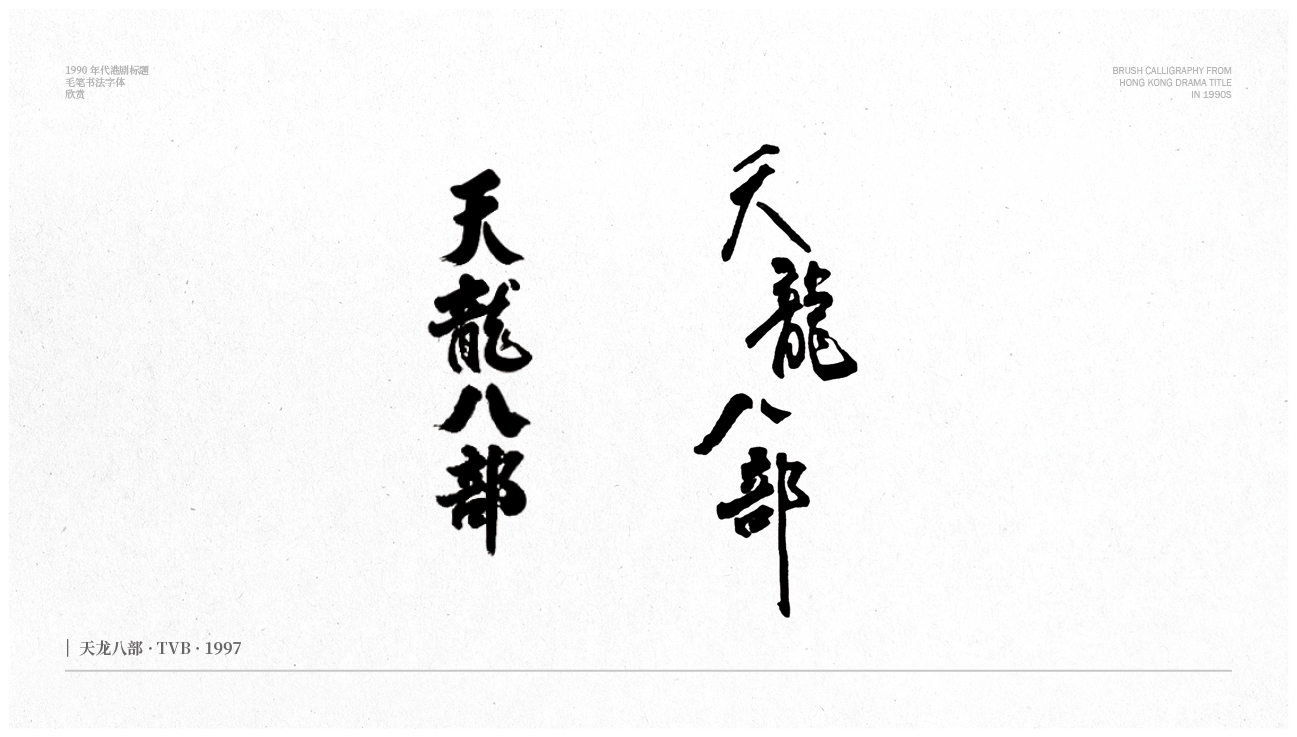 1990 年代港剧标题
毛笔书法字体
欣赏
BRUSH CALLIGRAPHY FROM
HONG KONG DRAMA TITLE
IN 1990S
天龍八部
天龍八部
天龙八部 · TVB · 1997